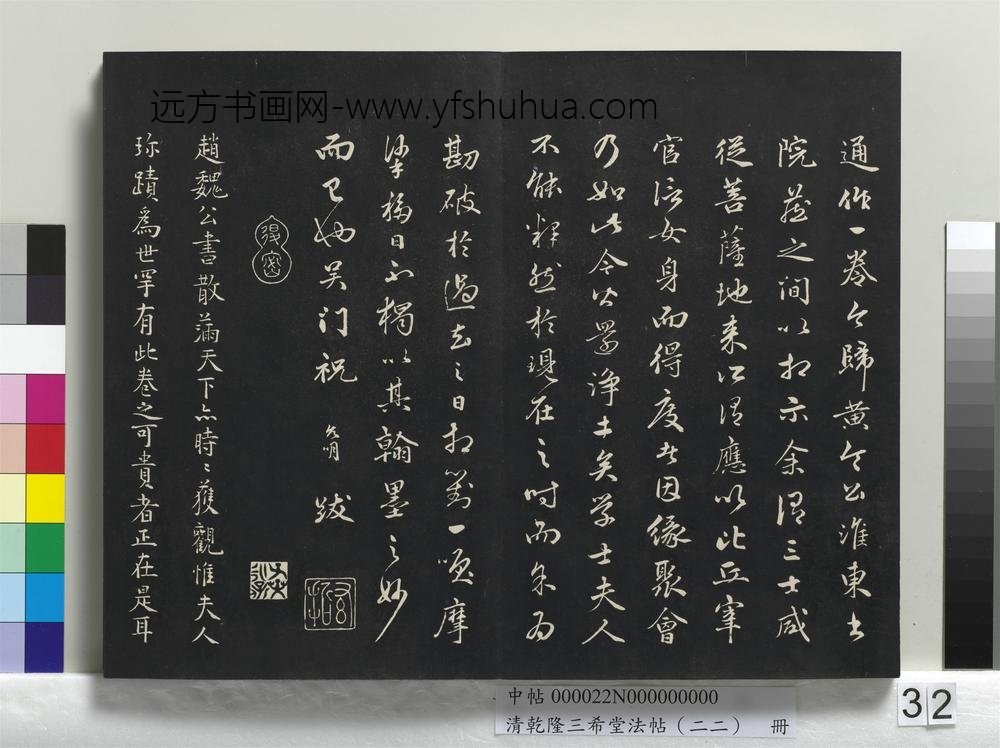 远方书画网-www.yfshuhua.com
通作一卷今歸黃令公淮東書
院蒞之间以相示余谓三士咸
從菩薩地来江谓應以比丘宰
官信女身而得度者因緣聚會
乃如此今公置净土矣学士夫人
不能釋然於現在之时而余为
勘破於過去之日相對一唤摩
挲移日不獨以其翰墨之妙
而已也吴门祝
允明
跋
趙魏公書散滿天下亦時〻獲觀惟夫人
珎蹟為世罕有此卷之可貴者正在是耳
中帖 000022N000000000
清乾隆三希堂法帖（二二） 冊
32